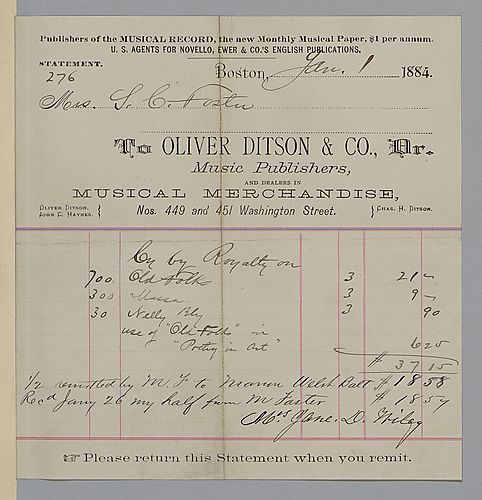 Publishers of the MUSICAL RECORD, the new Monthly Musical Paper, $1 per annum.
U. S. AGENTS FOR NOVELLO, EWER & CO.'S ENGLISH PUBLICATIONS.
STATEMENT.
276
Boston, Jan. 1 1884.
Mrs. S. C. Foster
To OLIVER DITSON & CO., Dr.
Music Publishers,
AND DEALERS IN
MUSICAL MERCHANDISE,
OLIVER DITSON.
JOHN C. HAYNES.
Nos. 449 and 451 Washington Street.
CHAS. H. DITSON.
Cr by Royalty on
700 Old Folks 3 21 -
300 Massa 3 9 -
30 Nelly Bly 3 90
use of "Old Folks" in
"Poetry in Art" 6 25
$ 37 15
1/2 remitted by M. F. to Marion Welsh Balt $ 18 58
Recd Jany 26 my half from M Foster $ 18 57
Mrs Jane. D. Wiley
☞ Please return this Statement when you remit.